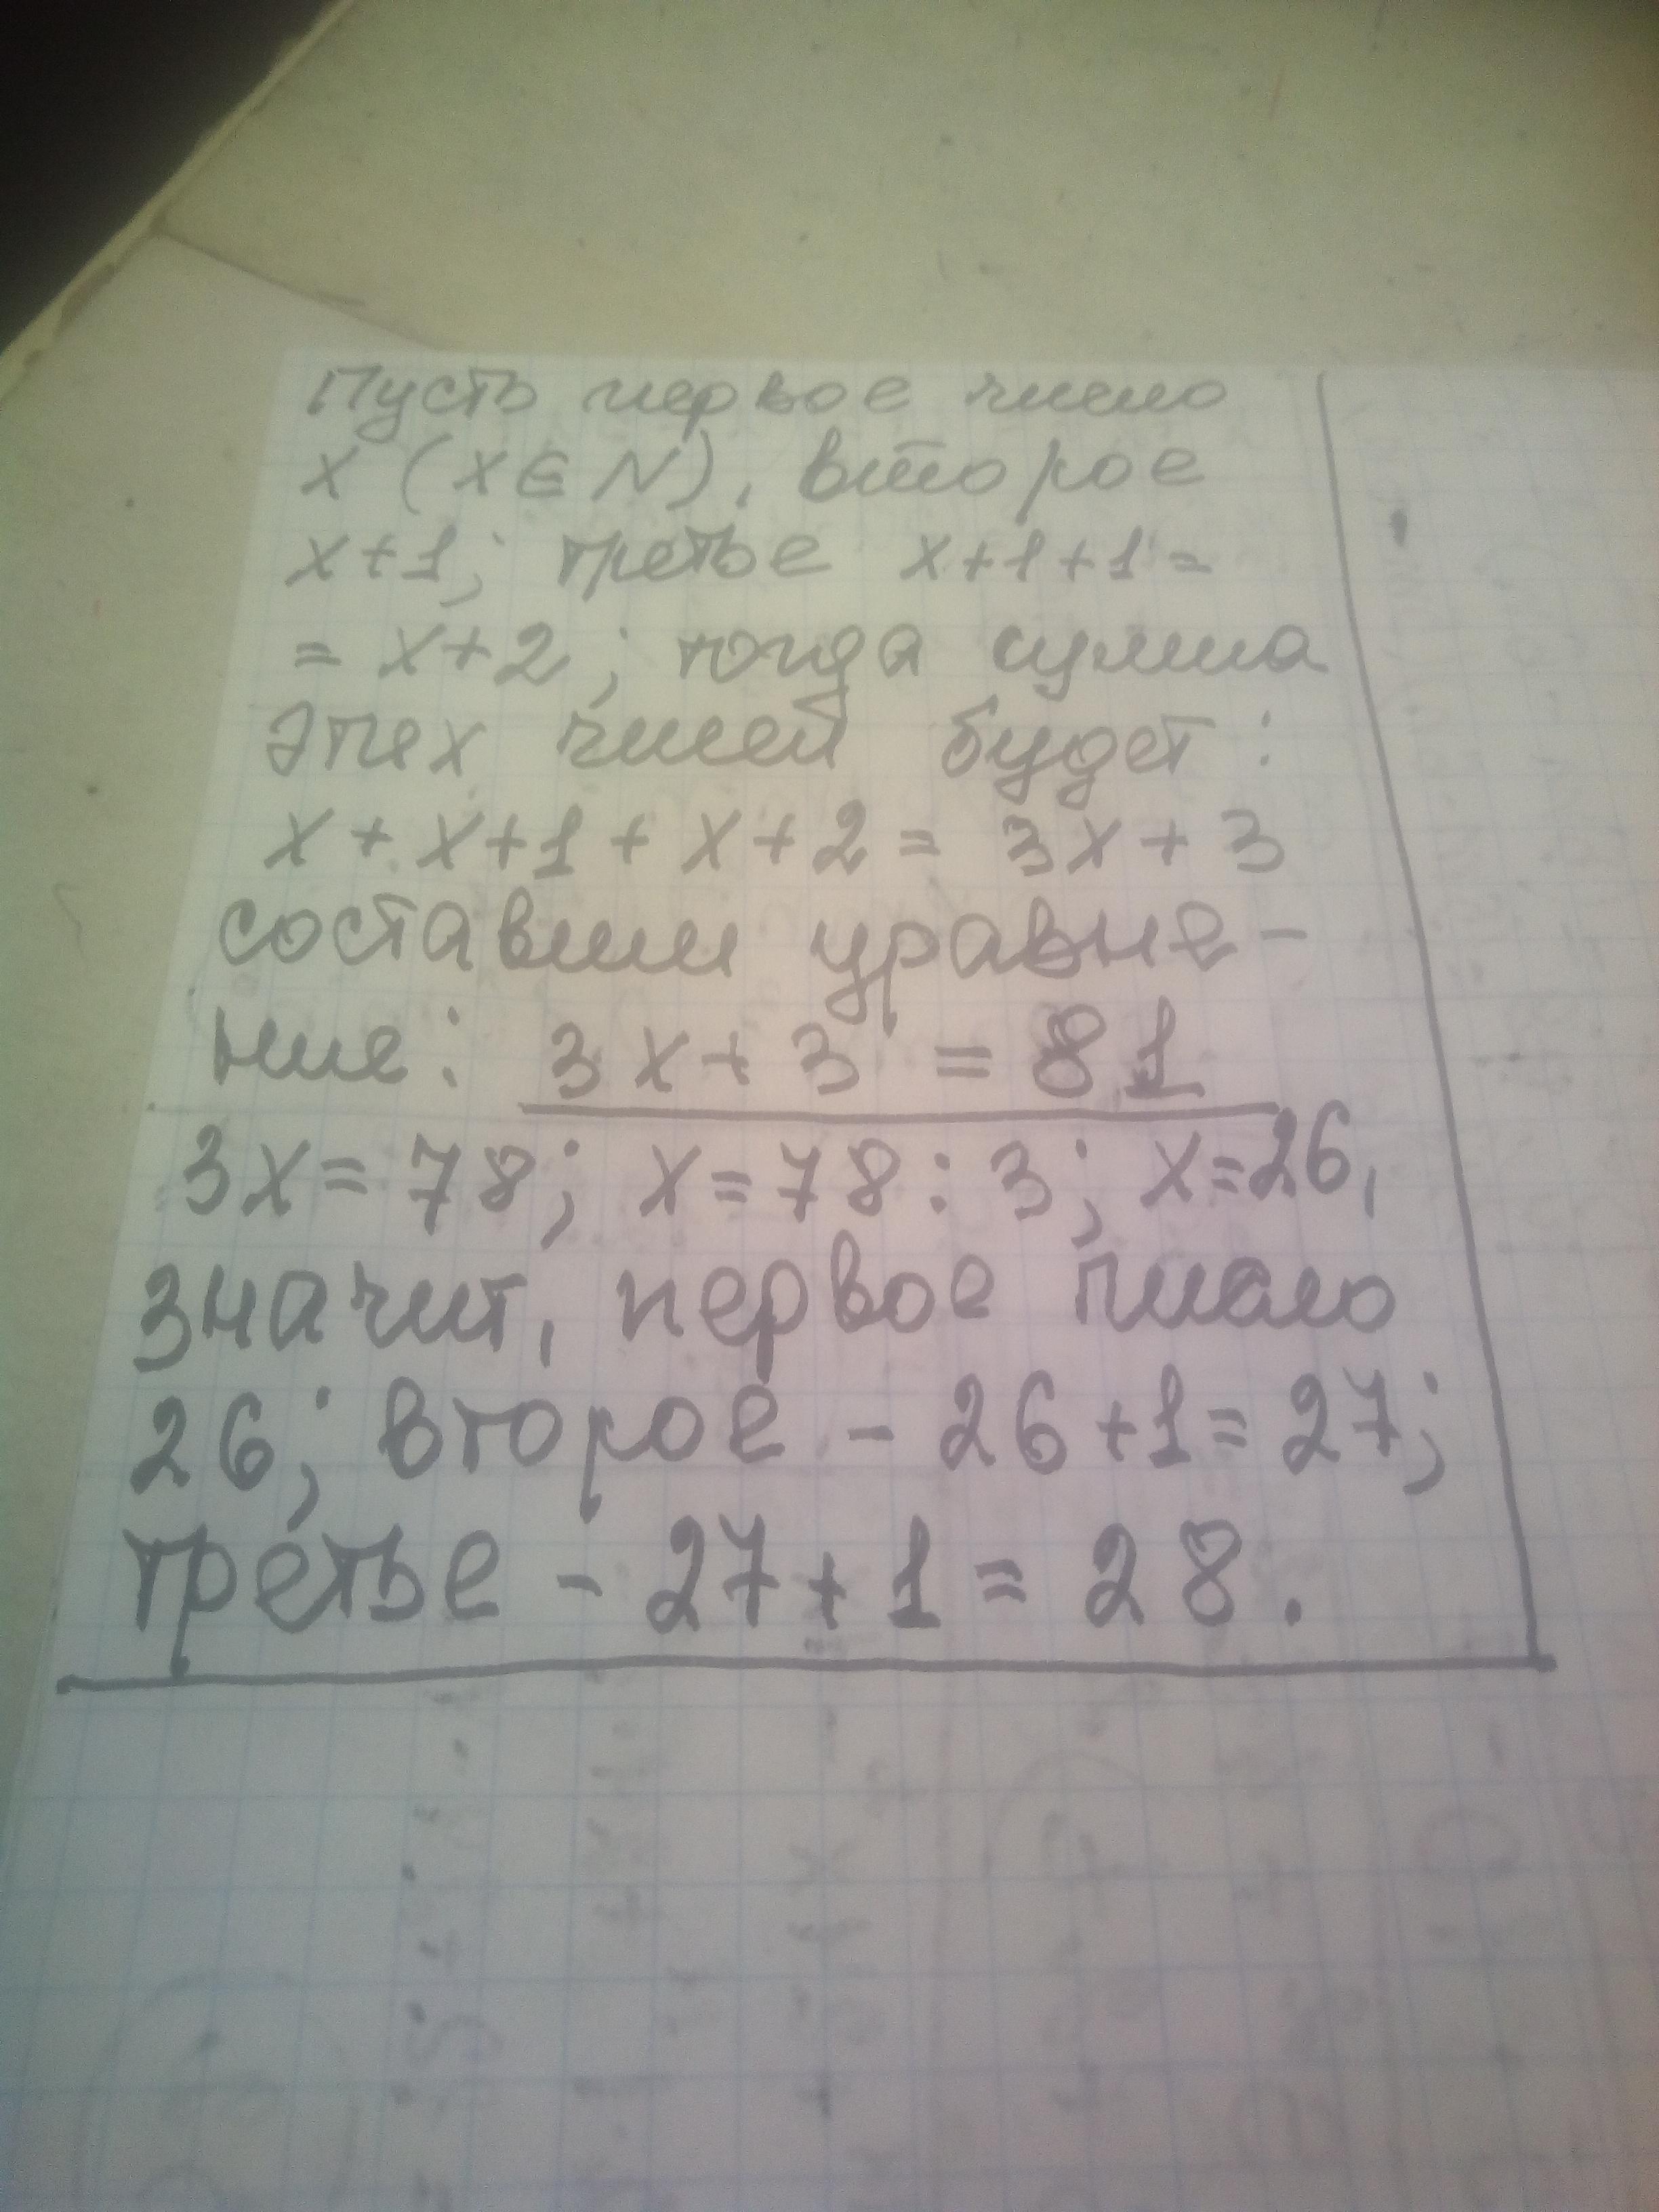 Пусть первое число
x (x ∈ N), второе
x+1; третье x+1+1=
= x+2; тогда сумма
этих чисел будет:
x + x+1 + x+2 = 3x + 3
составим уравне-
ние: 3x+3 = 81
3x = 78; x = 78 : 3; x = 26,
значит, первое число
26; второе - 26+1=27;
третье - 27+1 = 28.